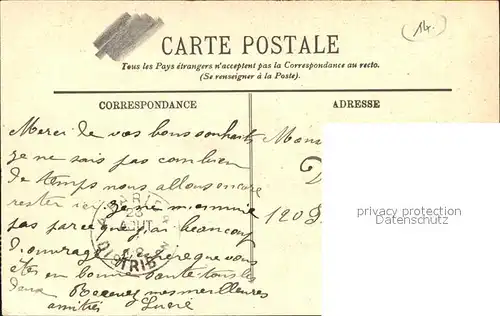 (14.)
CARTE POSTALE
Tous les Pays étrangers n'acceptent pas la Correspondance au recto.
(Se renseigner à la Poste).
CORRESPONDANCE
ADRESSE
Merci de vos bons souhaits
je ne sais pas combien
de temps nous allons encore
rester ici je ne m'ennuie
pas parce que j'ai beaucoup
d'ouvrage. j'espère que vous
êtes en bonne santé tous les
deux Recevez mes meilleures
amitiés Lucie
PARIS
23
AOUT
DISTRIB
Mons
D
120
privacy protection
watermark